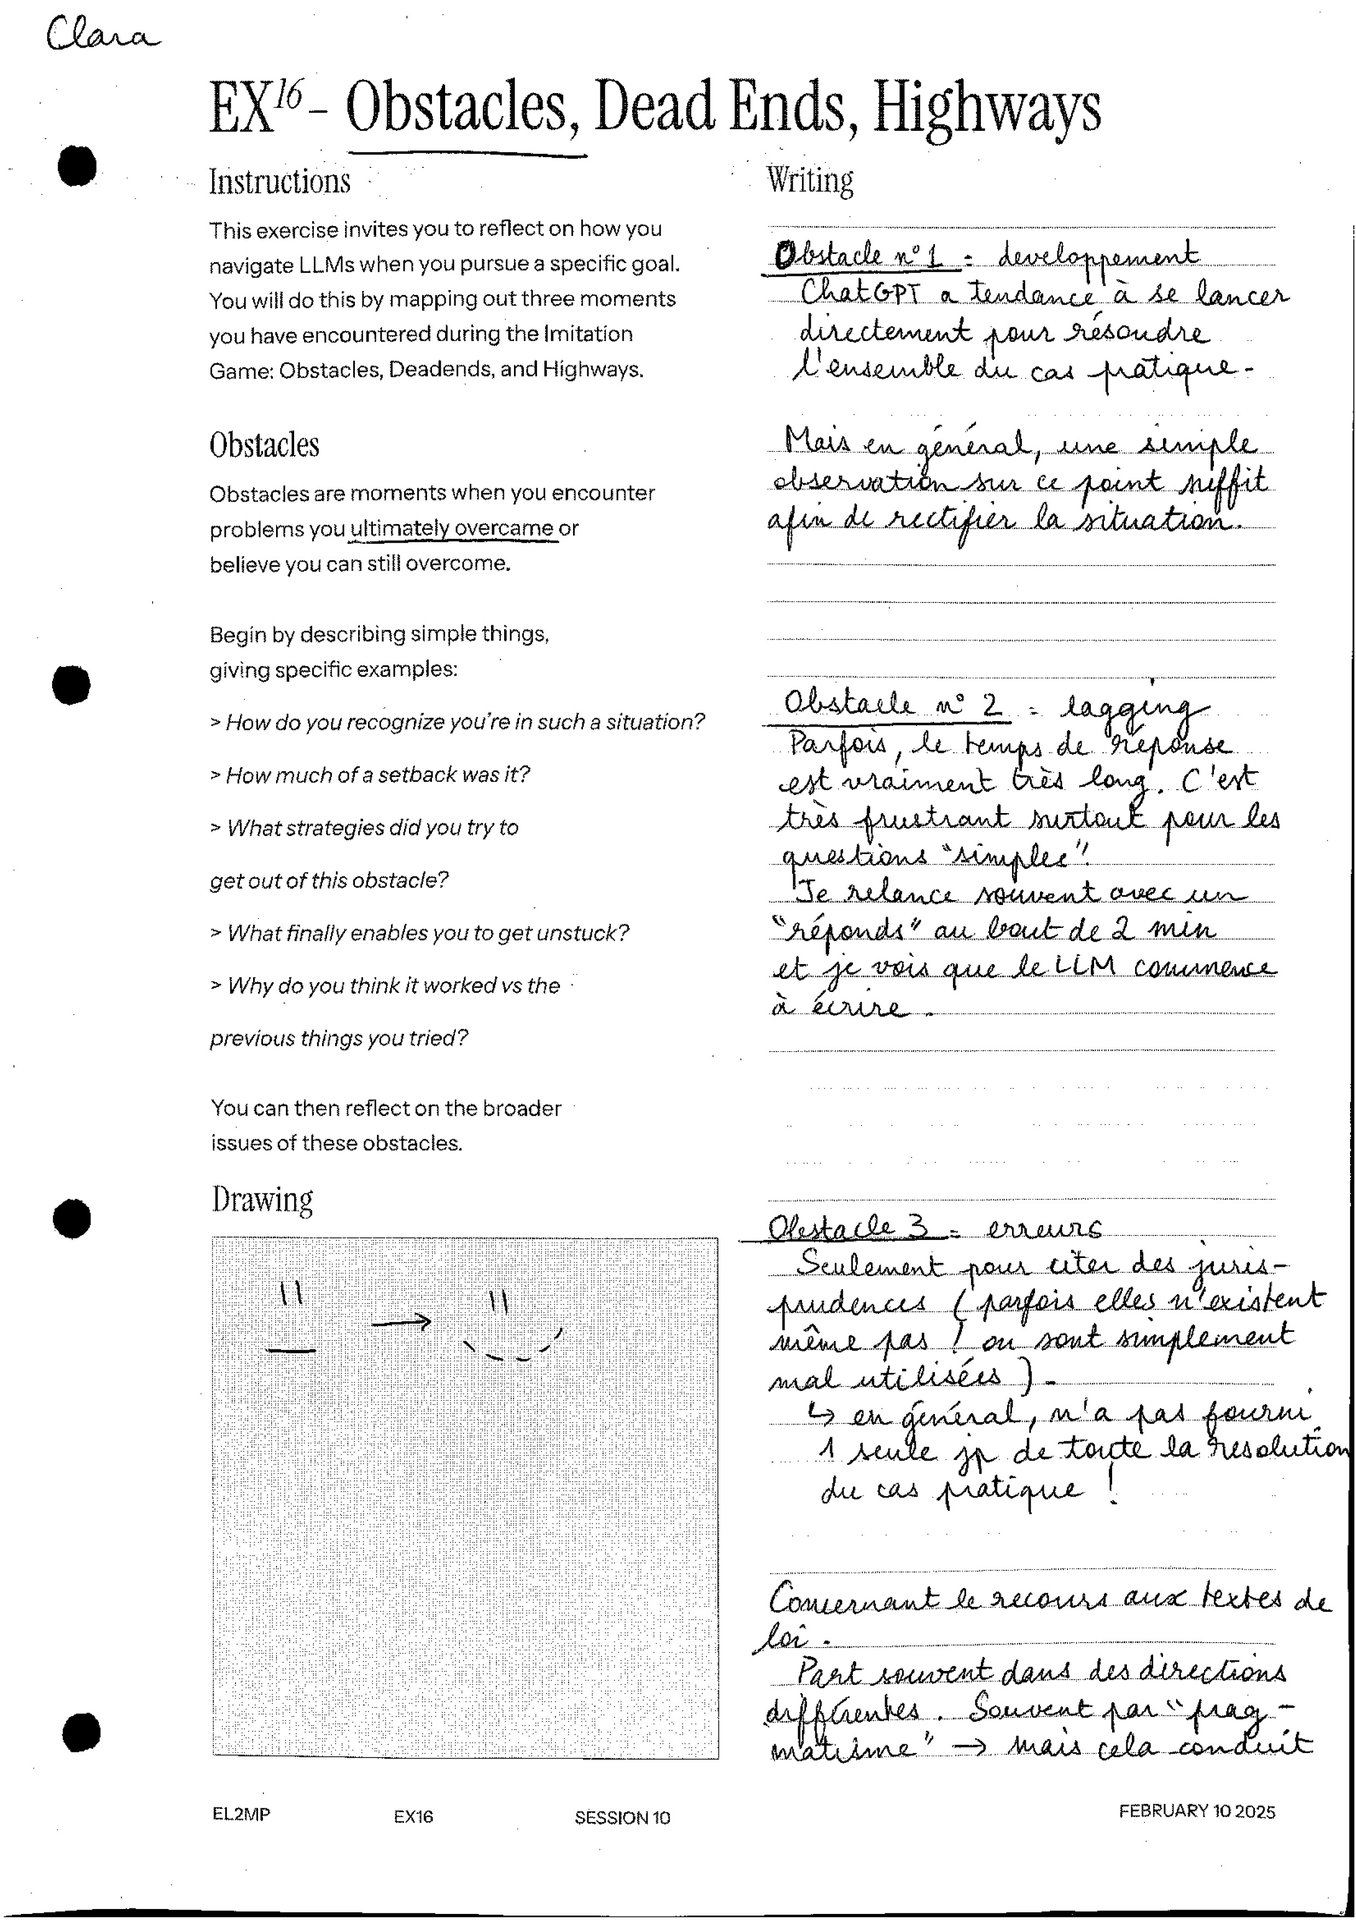 Clara
EX16 - Obstacles, Dead Ends, Highways
Instructions
This exercise invites you to reflect on how you
navigate LLMs when you pursue a specific goal.
You will do this by mapping out three moments
you have encountered during the Imitation
Game: Obstacles, Deadends, and Highways.
Obstacles
Obstacles are moments when you encounter
problems you ultimately overcame or
believe you can still overcome.
Begin by describing simple things,
giving specific examples:
> How do you recognize you're in such a situation?
> How much of a setback was it?
> What strategies did you try to
get out of this obstacle?
> What finally enables you to get unstuck?
> Why do you think it worked vs the
previous things you tried?
You can then reflect on the broader
issues of these obstacles.
Drawing
Writing
Obstacle n° 1 = developpement
ChatGPT a tendance à se lancer
directement pour résoudre
l'ensemble du cas pratique.
Mais en général, une simple
observation sur ce point suffit
afin de rectifier la situation.
Obstacle n° 2 = lagging
Parfois, le temps de réponse
est vraiment très long. C'est
très frustrant surtout pour les
questions "simples".
Je relance souvent avec un
"réponds" au bout de 2 min
et je vois que le LLM commence
à écrire.
Obstacle 3 = erreurs
Seulement pour citer des juris-
prudences (parfois elles n'existent
même pas ! ou sont simplement
mal utilisées).
↳ en général, n'a pas fourni
1 seule jp de toute la resolution
du cas pratique !
Concernant le recours aux textes de
loi.
Part souvent dans des directions
différentes. Souvent par "prag-
matisme" → mais cela conduit
EL2MP
EX16
SESSION 10
FEBRUARY 10 2025